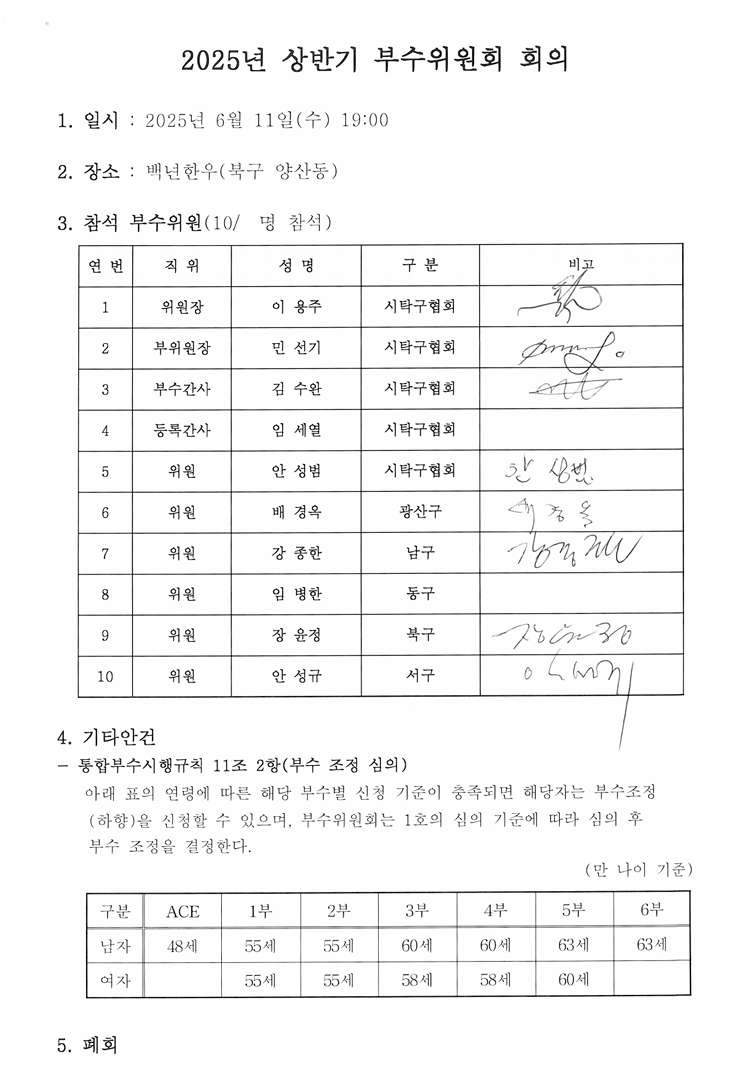 2025년 상반기 부수위원회 회의
1. 일시 : 2025년 6월 11일(수) 19:00
2. 장소 : 백년한우(북구 양산동)
3. 참석 부수위원(10/ 명 참석)
연 번 직 위 성 명 구 분 비고
1 위원장 이 용주 시탁구협회
2 부위원장 민 선기 시탁구협회
3 부수간사 김 수완 시탁구협회
4 등록간사 임 세열 시탁구협회
5 위원 안 성범 시탁구협회
6 위원 배 경옥 광산구 배경옥
7 위원 강 종한 남구
8 위원 임 병한 동구
9 위원 장 윤정 북구
10 위원 안 성규 서구
4. 기타안건
- 통합부수시행규칙 11조 2항(부수 조정 심의)
아래 표의 연령에 따른 해당 부수별 신청 기준이 충족되면 해당자는 부수조정
(하향)을 신청할 수 있으며, 부수위원회는 1호의 심의 기준에 따라 심의 후
부수 조정을 결정한다.
(만 나이 기준)
구분 ACE 1부 2부 3부 4부 5부 6부
남자 48세 55세 55세 60세 60세 63세 63세
여자 55세 55세 58세 58세 60세
5. 폐회